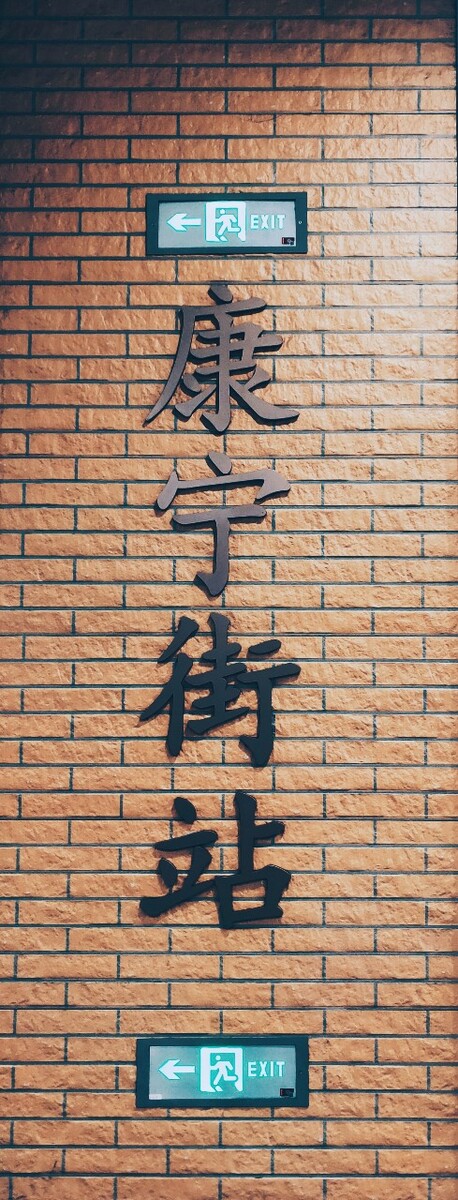 EXIT
康宁街站
EXIT